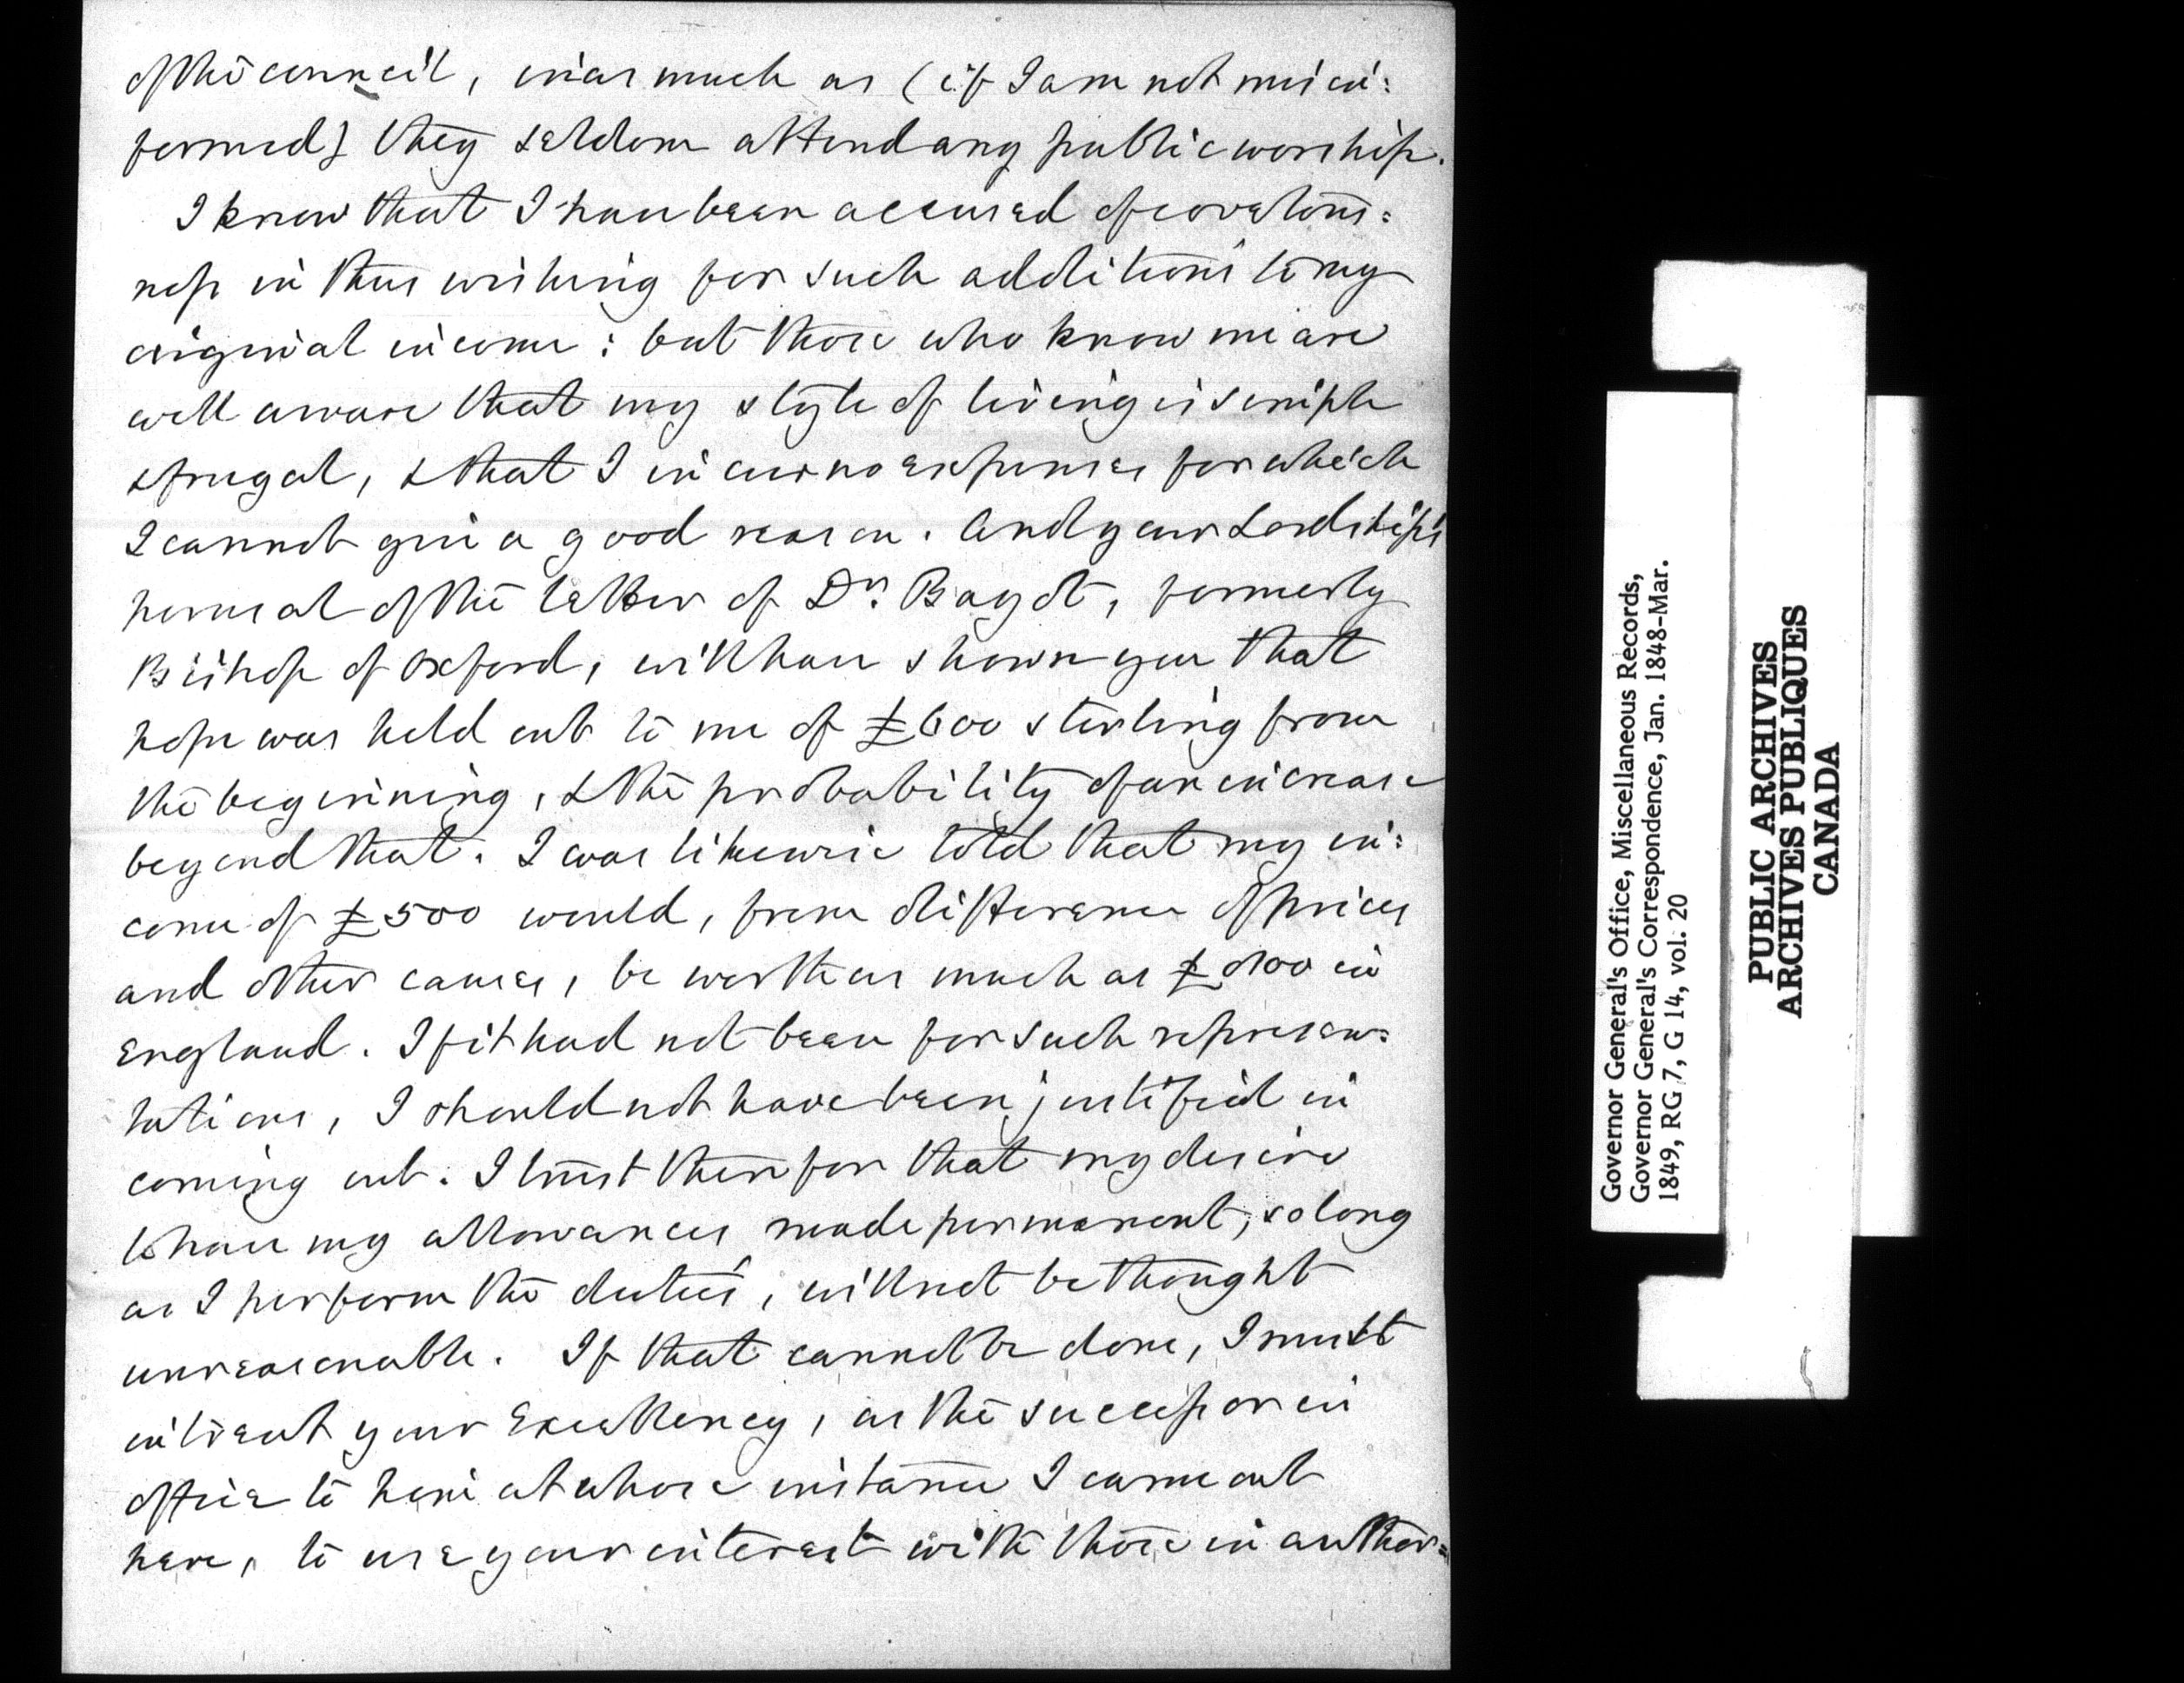 of the council, inasmuch as (if I am not misin:
formed) they seldom attend any public worship.
I know that I have been accused of covetous:
ness in thus wishing for such additions to my
original income : but those who know me are
well aware that my style of living is simple
& frugal, & that I incur no expenses for which
I cannot give a good reason. And your Lordship's
perusal of the letter of Dr. Bagot, formerly
Bishop of Oxford, will have shown you that
hope was held out to me of £600 sterling from
the beginning, & the probability of an increase
beyond that. I was likewise told that my in:
come of £500 would, from difference of prices
and other causes, be worth as much as £ in
England. If it had not been for such represen=
tations, I should not have been justified in
coming out. I trust therefore that my desire
to have my allowances made permanent, so long
as I perform the duties, will not be thought
unreasonable. If that cannot be done, I must
intreat your Excellency, as the successor in
office to him at whose instance I came out
here, to use your interest with those in author=
Governor General's Office, Miscellaneous Records,
Governor General's Correspondence, Jan. 1848-Mar.
1849, RG 7, G 14, vol. 20
PUBLIC ARCHIVES
ARCHIVES PUBLIQUES
CANADA